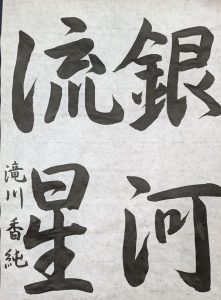 銀河
流星
滝川香純